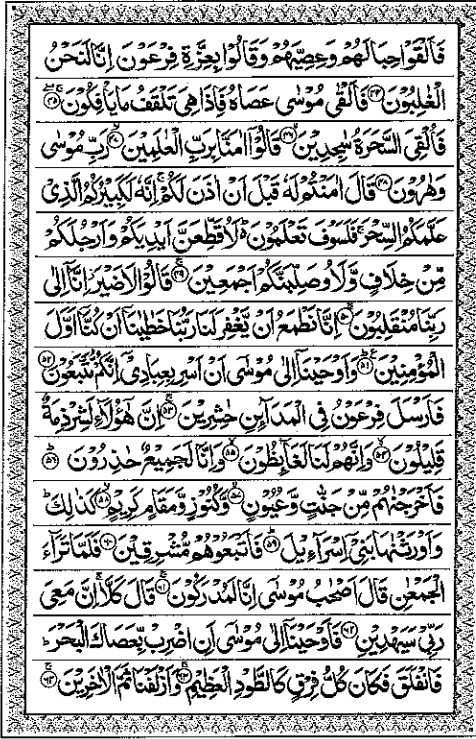 فَاَلْقَوْا حِبَالَهُمْ وَعِصِيَّهُمْ وَقَالُوْا بِعِزَّةِ فِرْعَوْنَ اِنَّا لَنَحْنُ
الْغٰلِبُوْنَ ﴿۴۴﴾ فَاَلْقٰى مُوْسٰى عَصَاهُ فَاِذَا هِىَ تَلْقَفُ مَا يَاْفِكُوْنَ ﴿۴۵﴾
فَاُلْقِىَ السَّحَرَةُ سٰجِدِيْنَ ﴿۴۶﴾ قَالُوْٓا اٰمَنَّا بِرَبِّ الْعٰلَمِيْنَ ﴿۴۷﴾ رَبِّ مُوْسٰى
وَهٰرُوْنَ ﴿۴۸﴾ قَالَ اٰمَنْتُمْ لَهٗ قَبْلَ اَنْ اٰذَنَ لَكُمْ ۚ اِنَّهٗ لَكَبِيْرُكُمُ الَّذِىْ
عَلَّمَكُمُ السِّحْرَ ۚ فَلَسَوْفَ تَعْلَمُوْنَ ؕ لَاُقَطِّعَنَّ اَيْدِيَكُمْ وَاَرْجُلَكُمْ
مِّنْ خِلَافٍ وَّلَاُوصَلِّبَنَّكُمْ اَجْمَعِيْنَ ﴿۴۹﴾ قَالُوْا لَا ضَيْرَ ۫ اِنَّآ اِلٰى
رَبِّنَا مُنْقَلِبُوْنَ ﴿۵۰﴾ اِنَّا نَطْمَعُ اَنْ يَّغْفِرَ لَنَا رَبُّنَا خَطٰيٰنَآ اَنْ كُنَّآ اَوَّلَ
الْمُؤْمِنِيْنَ ﴿۵۱﴾ وَاَوْحَيْنَآ اِلٰى مُوْسٰٓى اَنْ اَسْرِ بِعِبَادِىْٓ اِنَّكُمْ مُّتَّبَعُوْنَ ﴿۵۲﴾
فَاَرْسَلَ فِرْعَوْنُ فِى الْمَدَآئِنِ حٰشِرِيْنَ ﴿۵۳﴾ اِنَّ هٰٓؤُلَآءِ لَشِرْذِمَةٌ
قَلِيْلُوْنَ ﴿۵۴﴾ وَاِنَّهُمْ لَنَا لَغَآئِظُوْنَ ﴿۵۵﴾ وَاِنَّا لَجَمِيْعٌ حٰذِرُوْنَ ﴿۵۶﴾
فَاَخْرَجْنٰهُمْ مِّنْ جَنّٰتٍ وَّعُيُوْنٍ ﴿۵۷﴾ وَّكُنُوْزٍ وَّمَقَامٍ كَرِيْمٍ ﴿۵۸﴾ كَذٰلِكَ ؕ
وَاَوْرَثْنٰهَا بَنِىْٓ اِسْرَآءِيْلَ ﴿۵۹﴾ فَاَتْبَعُوْهُمْ مُّشْرِقِيْنَ ﴿۶۰﴾ فَلَمَّا تَرَآءَ
الْجَمْعٰنِ قَالَ اَصْحٰبُ مُوْسٰٓى اِنَّا لَمُدْرَكُوْنَ ﴿۶۱﴾ قَالَ كَلَّا ۚ اِنَّ مَعِىَ
رَبِّىْ سَيَهْدِيْنِ ﴿۶۲﴾ فَاَوْحَيْنَآ اِلٰى مُوْسٰٓى اَنِ اضْرِبْ بِّعَصَاكَ الْبَحْرَ ؕ
فَانْفَلَقَ فَكَانَ كُلُّ فِرْقٍ كَالطَّوْدِ الْعَظِيْمِ ﴿۶۳﴾ وَاَزْلَفْنَا ثَمَّ الْاٰخَرِيْنَ ﴿۶۴﴾